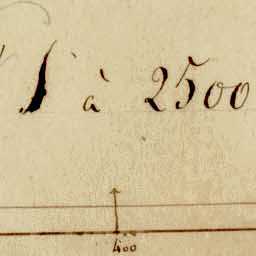 1 à 2500
400